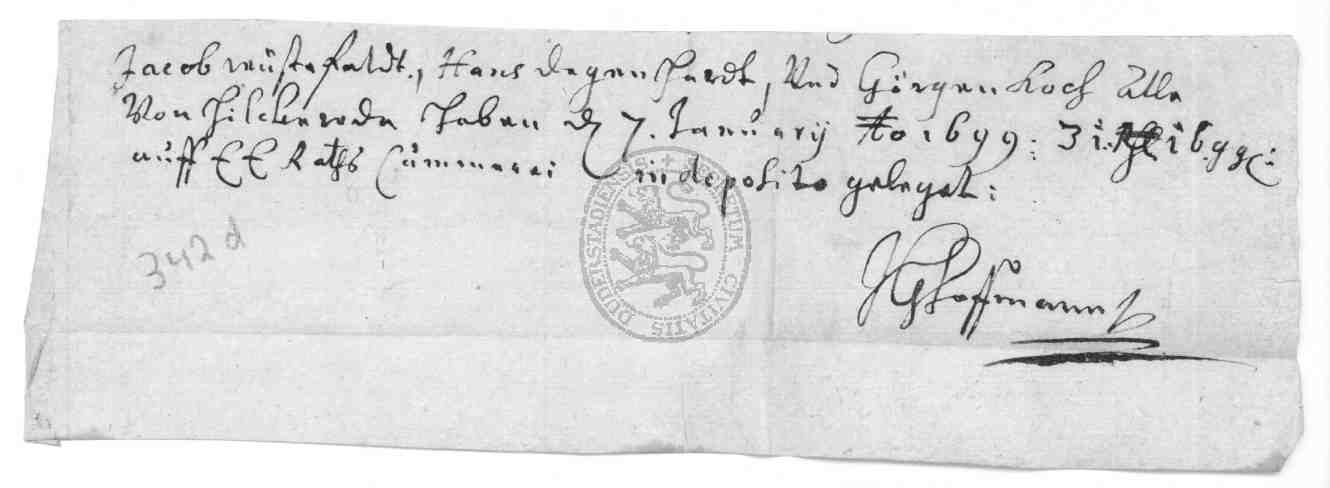 Jacob wüstefeldt, Hans degenhardt, Und Görgen Koch Alle
Von Hilckerode haben d 7. January Ao 1699: 31 16 ggl:
auff E E Raths Cämmerei in deposito geleget:
Hoffmann
342 d
SECRETUM CIVITATIS DUDERSTADIENSIS